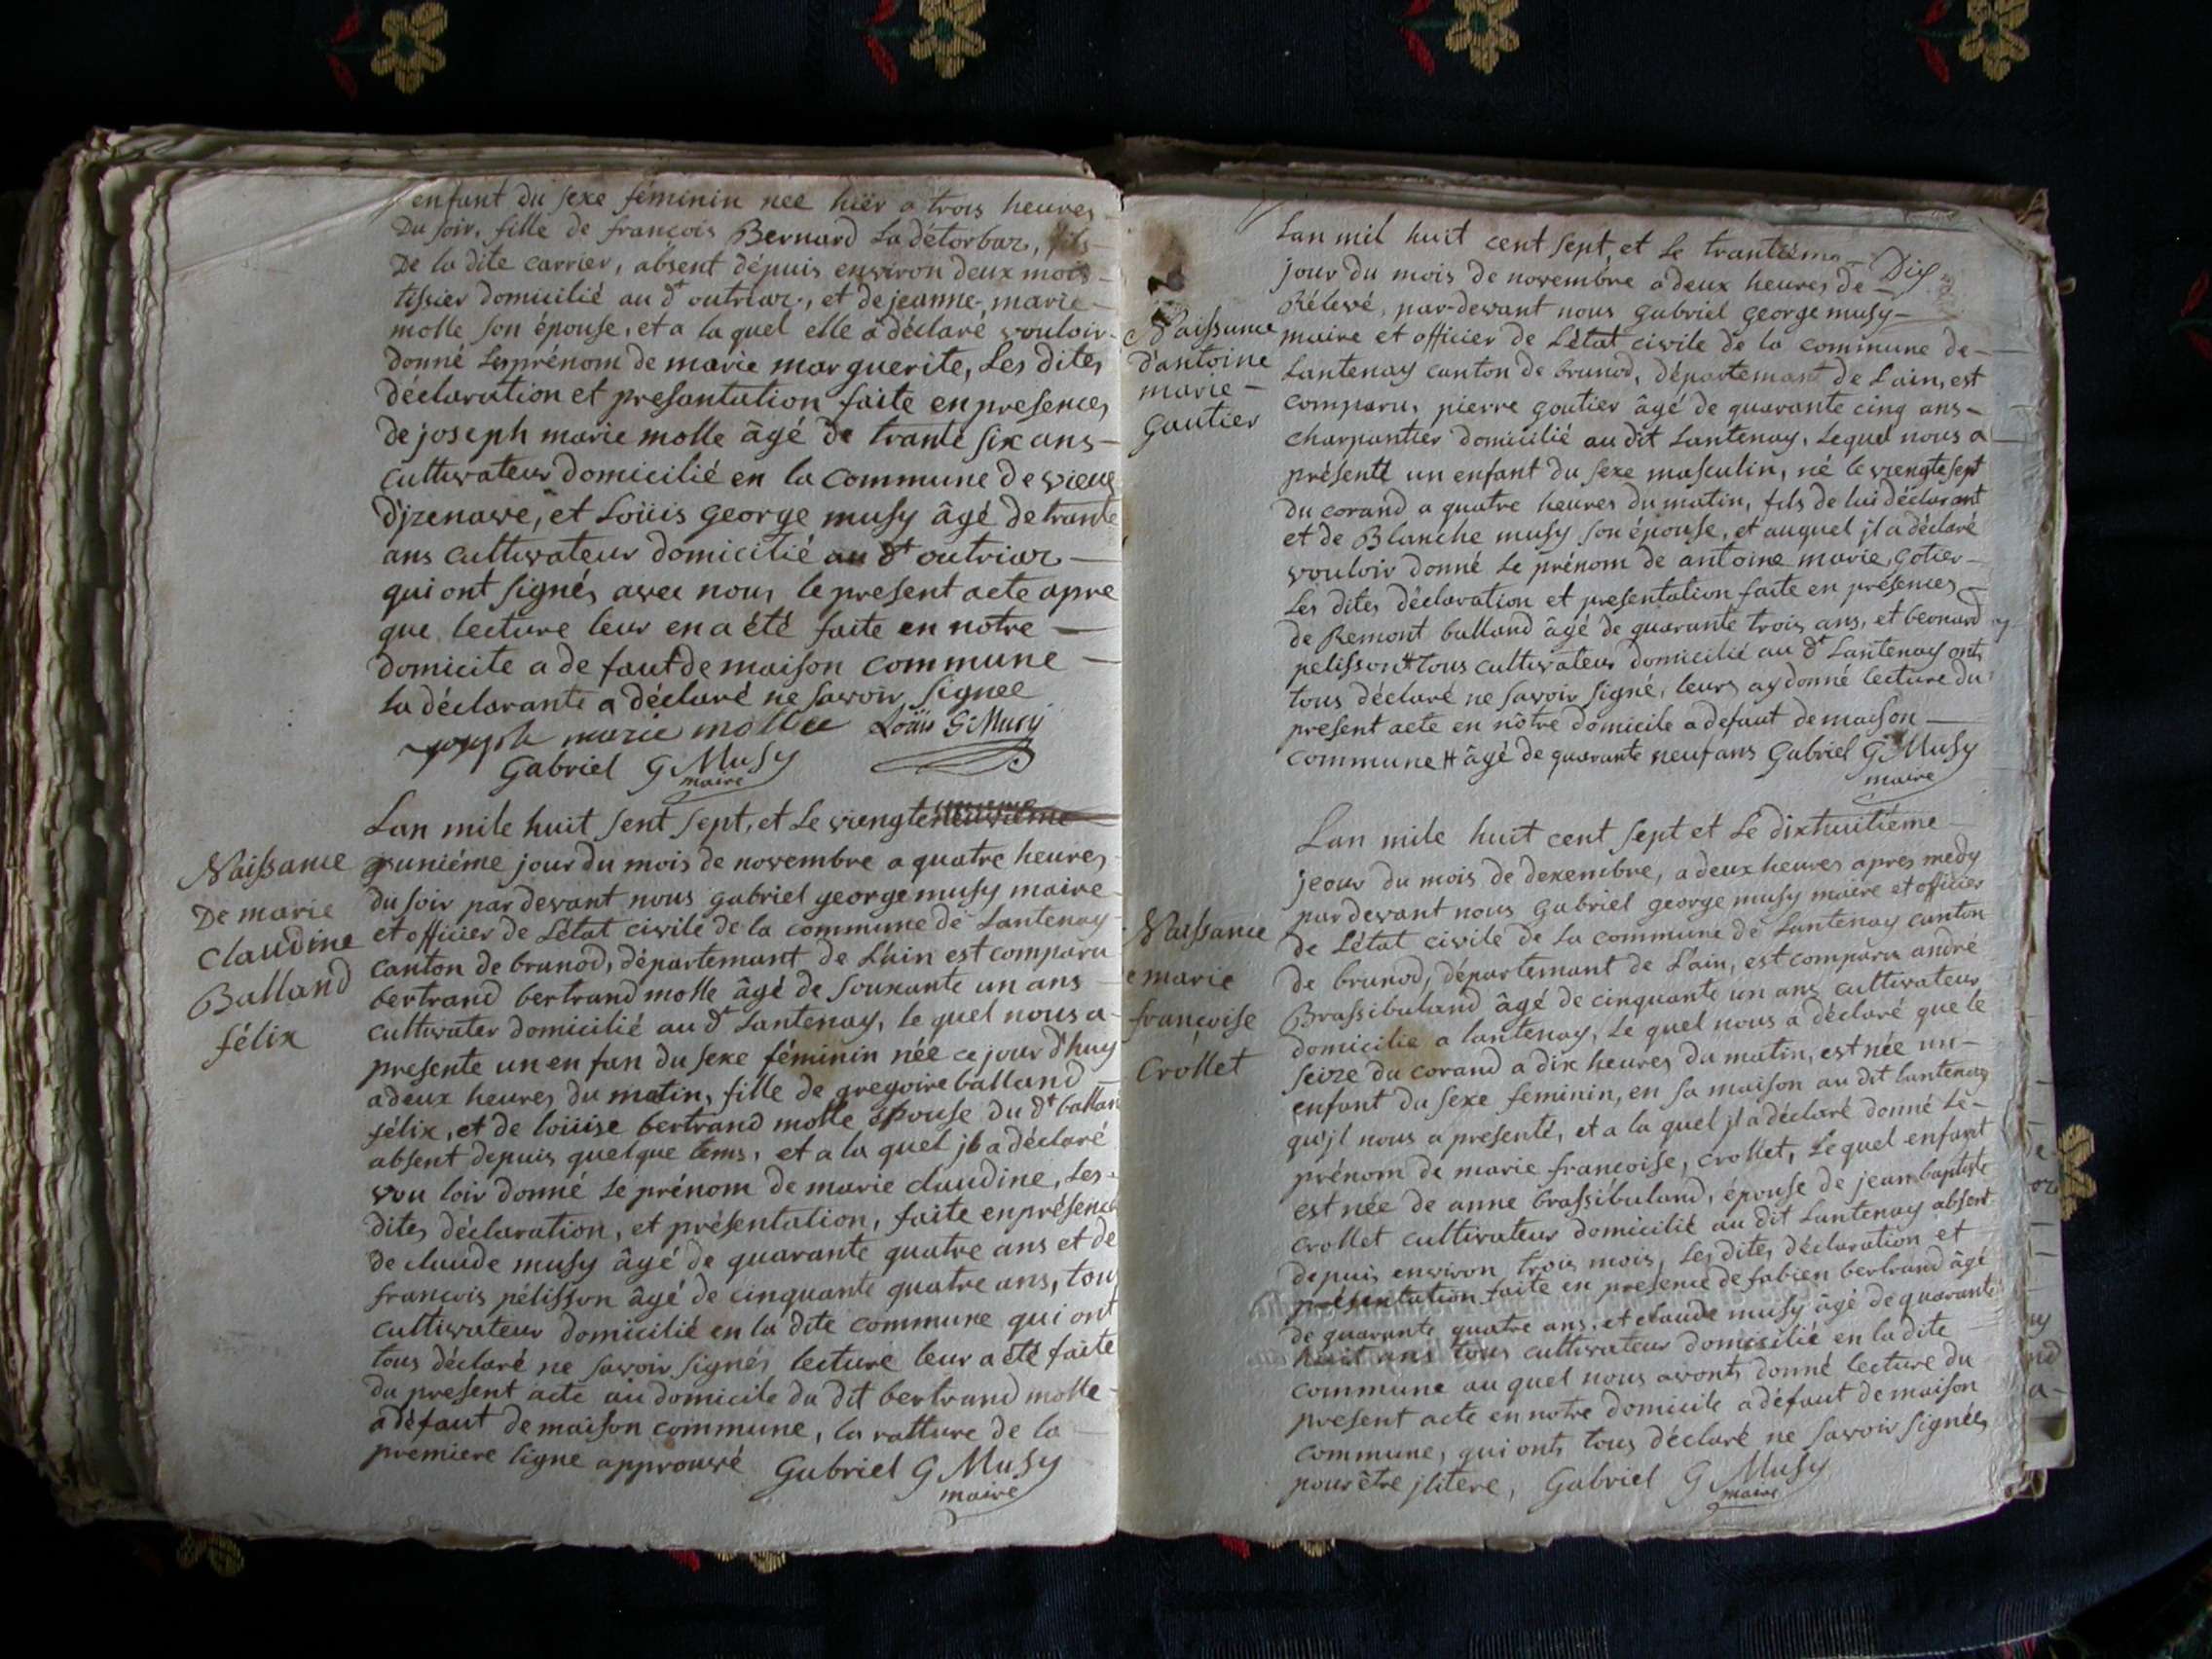 enfant du sexe féminin nee hiër a trois heures
Du soir, fille de françois Bernard La détorbaz, fils
De la dite carrier, absent dépuis environ deux mois
tissier domicilié au dt outriaz, et de jeanne, marie
molle son épouse, et a la quel elle a déclaré vouloir
donné les prénom de marie marguerite, Les dites
déclaration et presantation faite en presences
de joseph marie molle âgé de trante six ans
cultivateur domicilié en la commune de vieux
d'izenave, et Loüis george musy âgé de trante
ans cultivateur domicilié au dt outriaz
qui ont signés avec nous le present acte apre
que lecture leur en a été faite en notre
domicile a defaut de maison commune
La déclarante a déclaré ne savoir signee
joseph marie mollee Loüis G Musy
Gabriel G Musy
maire
Naissance
De marie
Claudine
Balland
félix
Lan mile huit sent sept, et Le viengte
uniéme jour du mois de novembre a quatre heures
du soir par devant nous gabriel george musy maire
et officier de Létat civile de la commune de Lantenay
canton de brunod, départemant de L'hin est comparu
bertrand bertrand molle âgé de souxante un ans
cultivater domicilié au dt Lantenay, le quel nous a
presente un en fan du sexe féminin née ce jour d'huy
a deux heures du matin, fille de gregoire balland
félix, et de loüise bertrand molle épouse du dt ballan
absent depuis quelque tems, et a la quel jl a déclaré
vou loir donné Le prénom de marie claudine, Les
dites déclaration, et présentation, faite en présence
de claude musy âgé de quarante quatre ans et de
francois pélisson âgé de cinquante quatre ans, tous
cultivateur domicilié en la dite commune qui ont
tous déclaré ne savoir signés lecture leur a été faite
du present acte au domicile du dit bertrand molle
a défaut de maison commune, la ratture de la
premiere ligne approuvé Gabriel G Musy
maire
Lan mil huit cent sept, et Le trantiéme
jour du mois de novembre a deux heures de
Rélevé, par-devant nous gabriel george musy
maire et officier de Létat civile de la commune de
Lantenay canton de brunod, départemant de L'ain, est
comparu, pierre goutier âgé de quarante cinq ans
charpantier domicilié au dit Lanténay, Lequel nous a
présenté un enfant du sexe masculin, né le viengte sept
du corand a quatre heures du matin, fils de lui déclarant
et de Blanche musy son épouse, et auquel jl a déclaré
vouloir donné Le prénom de antoine marie, gotier
Les dites déclaration et presentation faite en présences
de Remont balland âgé de quarante trois ans, et bernard
pelisson # tous cultivateur domicilié au dt Lantenay ont
tous déclaré ne savoir signé, leurs ay donné lecture du
present acte en nôtre domicile a defaut de maison
commune # âgé de quarante neuf ans Gabriel G Musy
maire
Dix
Naissance
D'antoine
marie
gautier
Lan mile huit cent sept et Le dixhuitiéme
jeour du mois de dexembre, a deux heures apres medy
par devant nous gabriel george musy maire et officier
de Létat civile de La commune de Lantenay canton
de brunod, département de L'ain, est comparu andré
Brassibuland âgé de cinquante un ans cultivateur
domicilie a lantenay, Le quel nous a déclaré que le
seize du corand a dix heures du matin, est née un
enfant du sexe feminin, en sa maison au dit lantenay
qu'jl nous a presenté, et a la quel jl a déclaré donné Le
prénom de marie francoise, crollet, Lequel enfant
est née de anne brassibuland, épouse de jean baptiste
crollet cultivateur domicilié au dit Lantenay absent
depuis environ trois mois, Les dites déclaration et
présentation faite en presence de fabien bertrand âgé
de quarante quatre ans, et claude musy âgé de quarante
huit ans tous cultivateur domicilié en la dite
commune au quel nous avont donné lecture du
present acte en notre domicile a défaut de maison
commune, qui onts tous déclaré ne savoir signées
pour être jlitere, Gabriel G Musy
maire
Naissance
e marie
françoise
Crollet